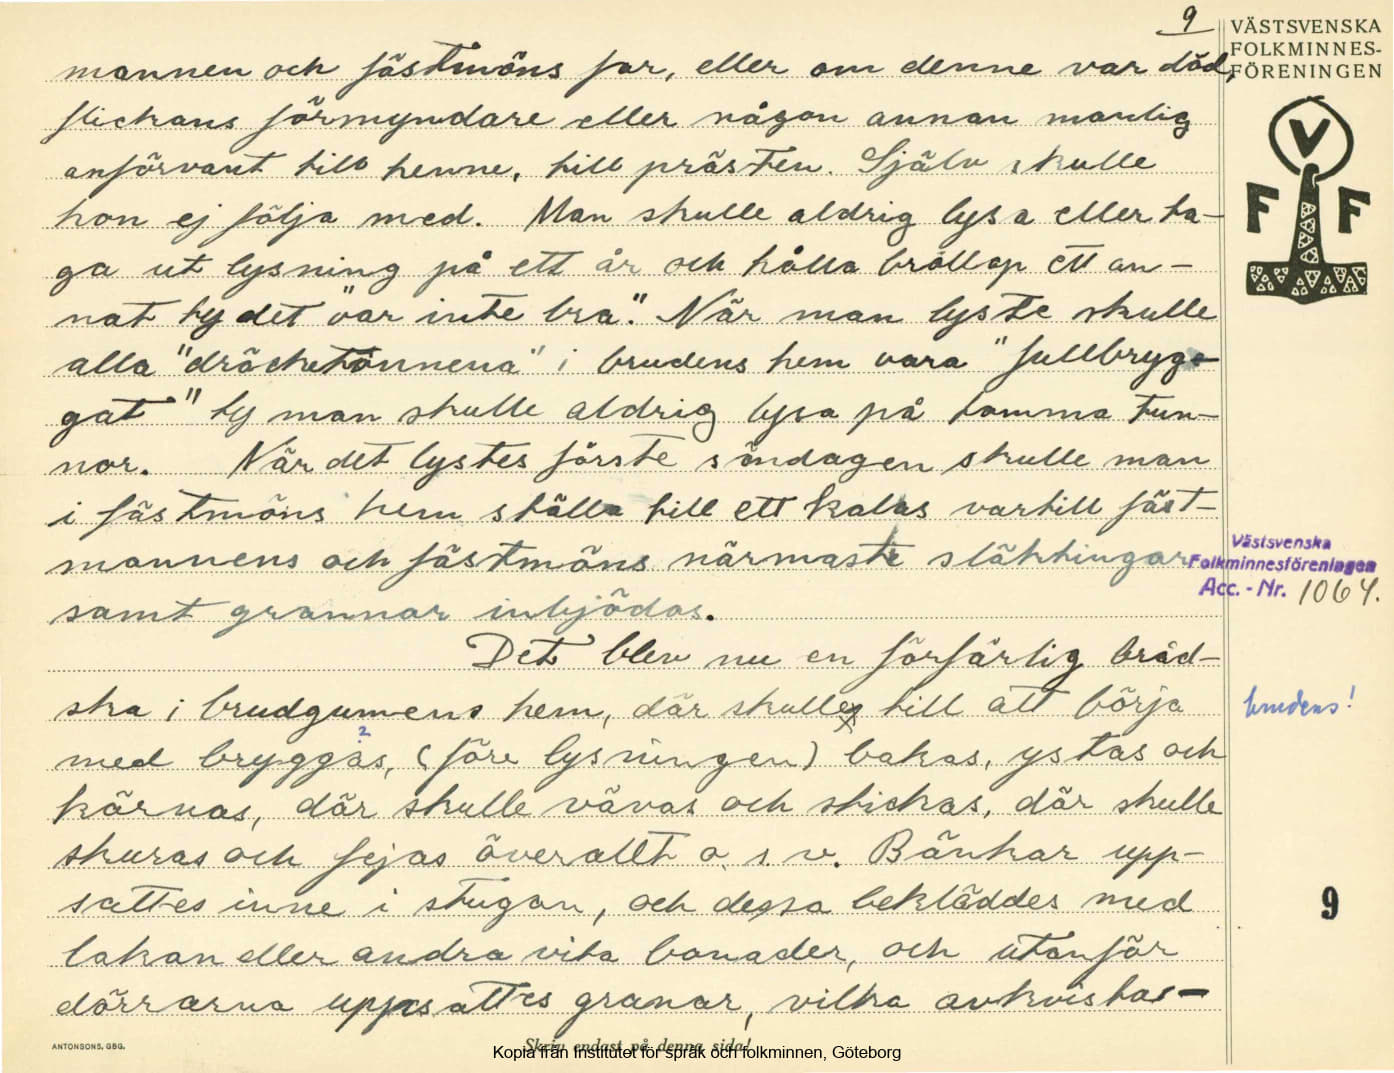 9
VÄSTSVENSKA
FOLKMINNES-
FÖRENINGEN
V
F F
mannen och fästmöns far, eller om denne var död,
flickans förmyndare eller någon annan manlig
anförvant till henne, till prästen. Själv skulle
hon ej följa med. Man skulle aldrig lysa eller ta-
ga ut lysning på ett år och hålla bröllop ett an-
nat ty det "var inte bra". När man lyste skulle
alla "dräcketönnena" i brudens hem vara "fullbryg-
gat" ty man skulle aldrig lysa på tomma tun-
nor. När det lystes förste söndagen skulle man
i fästmöns hem ställa till ett kalas vartill fäst-
mannens och fästmöns närmaste släktingar
samt grannar inbjödos.
Västsvenska
Folkminnesföreningen
Acc.-Nr. 1064.
Det blev nu en förfärlig bråd-
ska i brudgumens hem, där skulle till att börja
brudens!
med bryggas, (före lysningen) bakas, ystas och
2
kärnas, där skulle vävas och stickas, där skulle
skuras och fejas överallt o. s. v. Bänkar upp-
sattes inne i stugan, och dessa bekläddes med
9
lakan eller andra vita bonader, och utanför
dörrarna uppsattes granar, vilka avkvistas-
ANTONSONS, GBG.
Skriv endast på denna sida!
Kopia från Institutet för språk och folkminnen, Göteborg